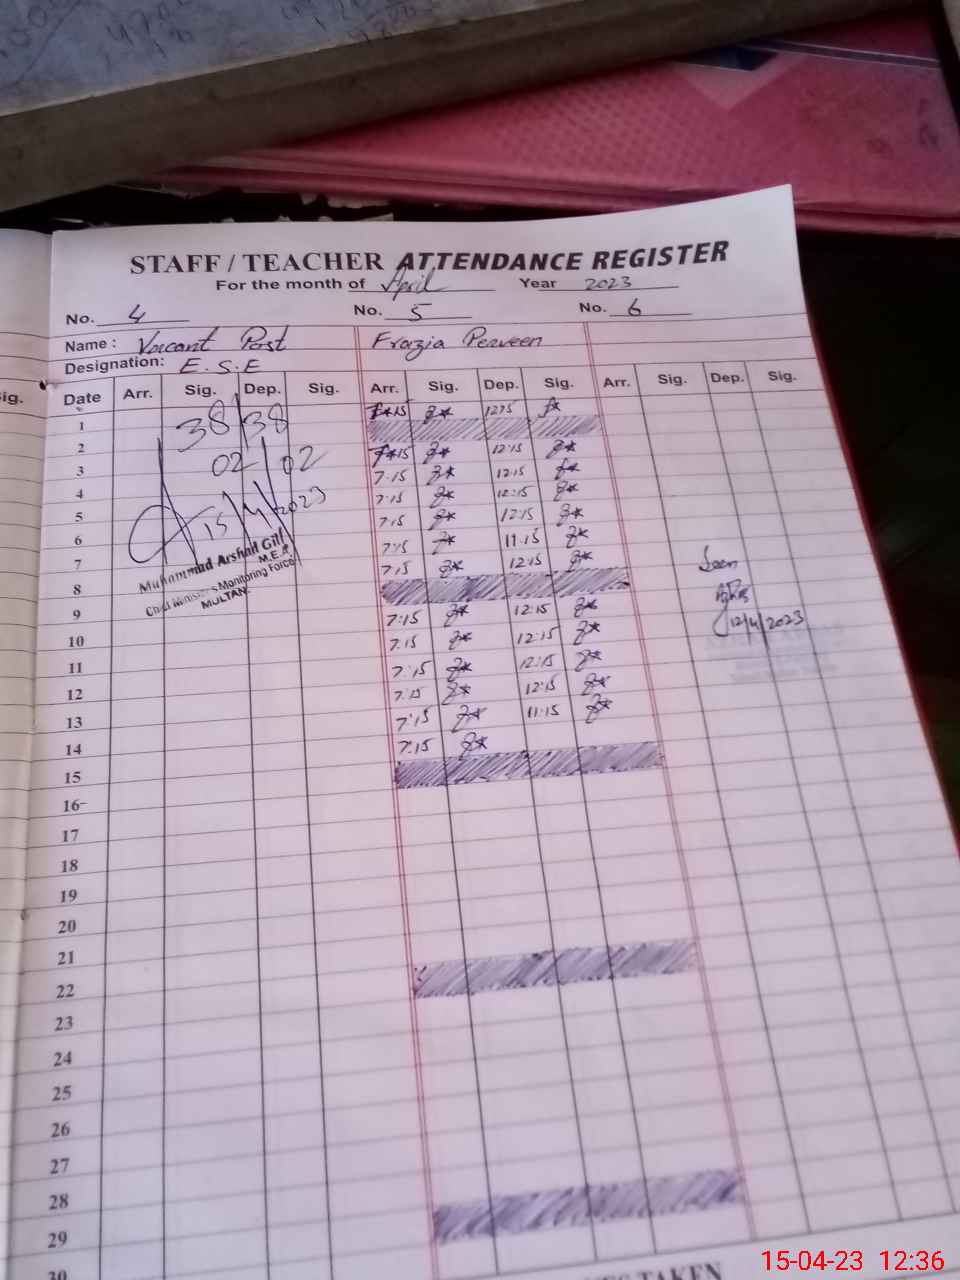 STAFF / TEACHER ATTENDANCE REGISTER
For the month of April Year 2023
No. 4 No. 5 No. 6
Name : Vacant Post Frazia Perveen
Designation: E.S.E
ig.
Date Arr. Sig. Dep. Sig. Arr. Sig. Dep. Sig. Arr. Sig. Dep. Sig.
1 38/38 7:15 12:15
2 02/02 7:15 12:15
3 7:15 12:15
4 7:15 12:15
5 15/4/2023 7:15 12:15
6 7:15 11:15
7 7:15 12:15
Muhammad Arshad Gill
M.E.A
Chief Minister's Monitoring Force
MULTAN.
Seen
12/4/2023
8
9 7:15 12:15
10 7:15 12:15
11 7:15 12:15
12 7:15 12:15
13 7:15 11:15
14 7:15
15
16
17
18
19
20
21
22
23
24
25
26
27
28
29
30
TAKEN
15-04-23 12:36